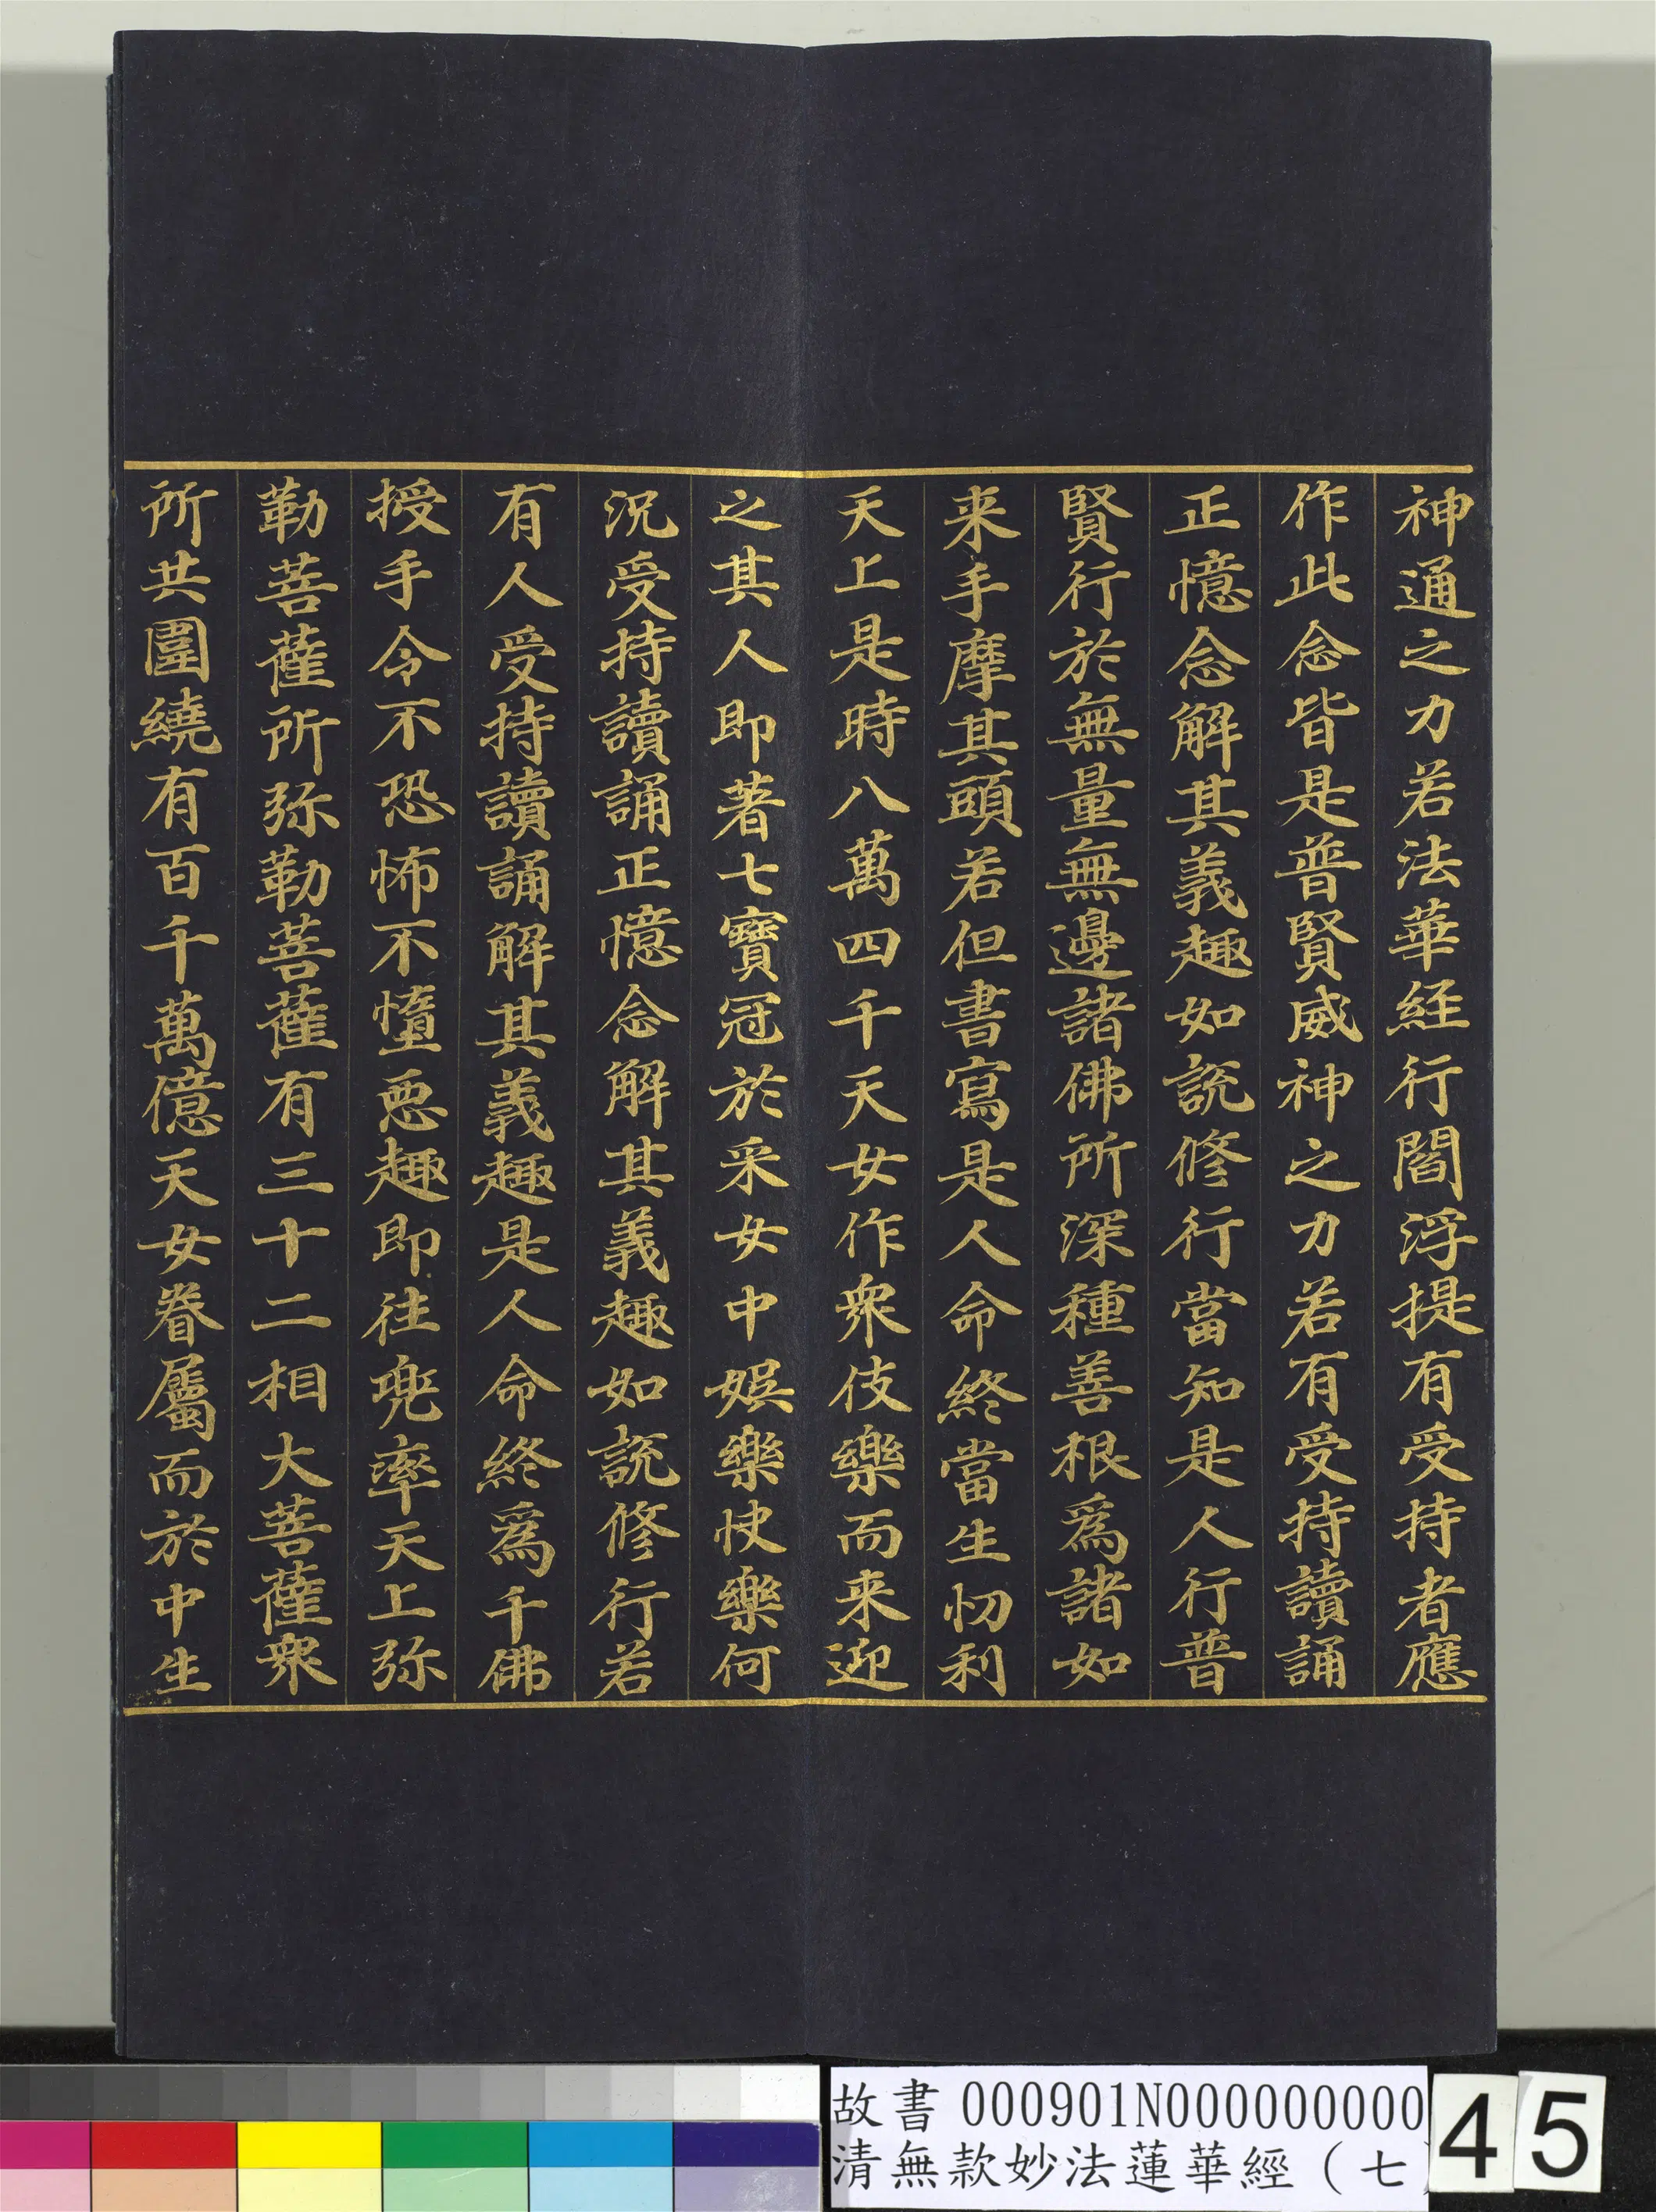 神通之力若法華経行閻浮提有受持者應
作此念皆是普賢威神之力若有受持讀誦
正憶念解其義趣如說修行當知是人行普
賢行於無量無邊諸佛所深種善根爲諸如
来手摩其頭若但書寫是人命終當生忉利
天上是時八萬四千天女作衆伎樂而来迎
之其人即著七寶冠於采女中娛樂快樂何
況受持讀誦正憶念解其義趣如說修行若
有人受持讀誦解其義趣是人命終爲千佛
授手令不恐怖不墮惡趣即往兜率天上弥
勒菩薩所弥勒菩薩有三十二相大菩薩衆
所共圍繞有百千萬億天女眷屬而於中生
故書 000901N000000000
清無款妙法蓮華經（七
45